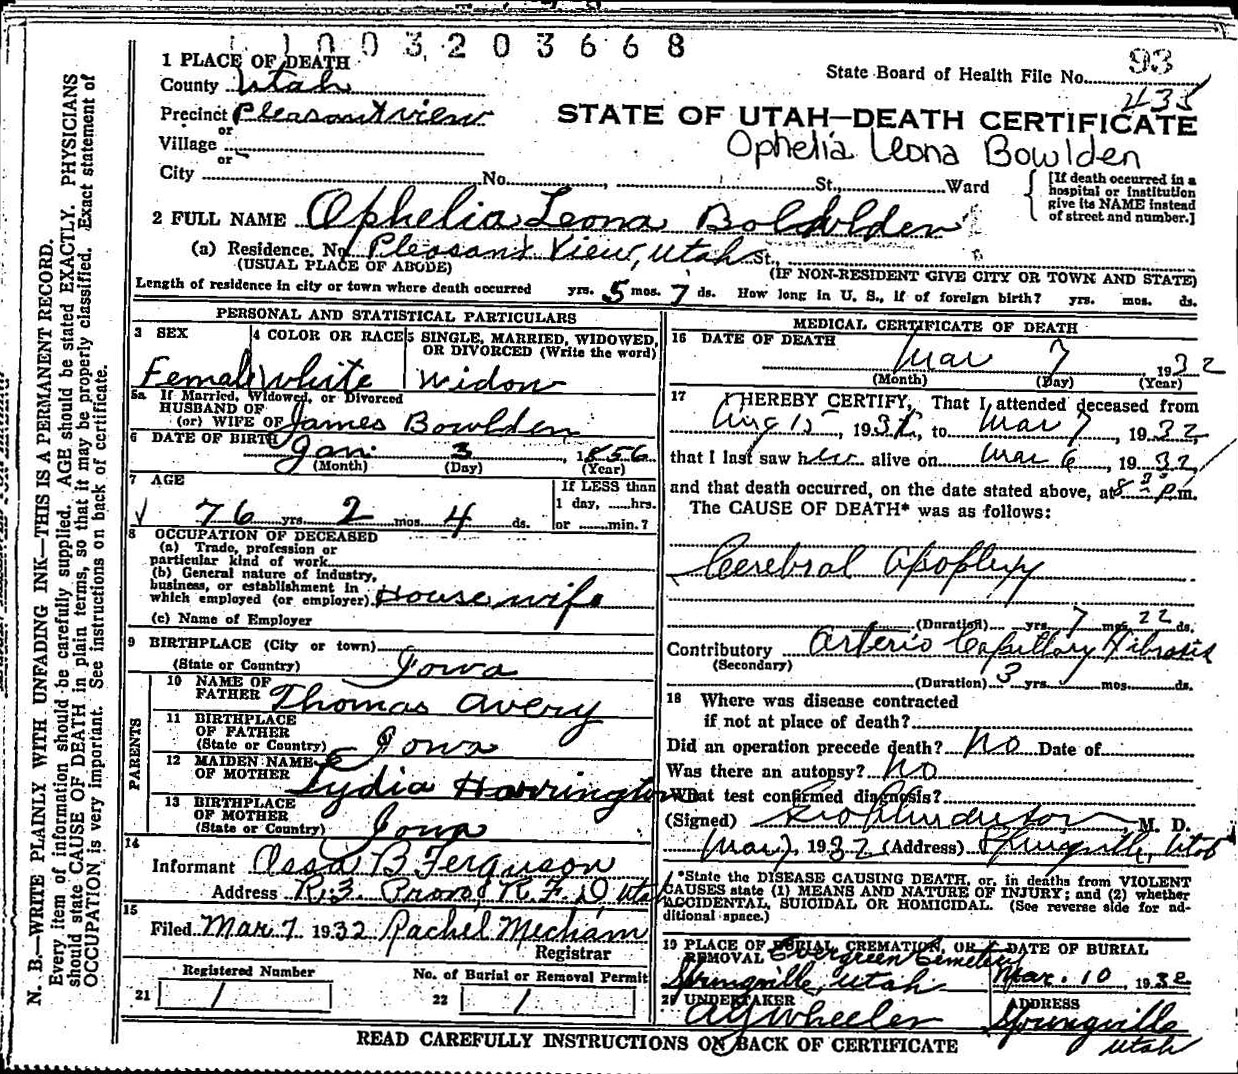 1003203668
93
1 PLACE OF DEATH
State Board of Health File No.
County Utah
435
Precinct Pleasant view
STATE OF UTAH—DEATH CERTIFICATE
or
Village
Ophelia Leona Bowlden
or
City No. , St., Ward
[If death occurred in a hospital or institution give its NAME instead of street and number.]
2 FULL NAME Ophelia Leona Bowlden
(a) Residence. No. Pleasant View, Utah St.,
(USUAL PLACE OF ABODE) (IF NON-RESIDENT GIVE CITY OR TOWN AND STATE)
Length of residence in city or town where death occurred yrs. 5 mos. 7 ds. How long in U. S., if of foreign birth? yrs. mos. ds.
PERSONAL AND STATISTICAL PARTICULARS
3 SEX
Female
4 COLOR OR RACE
White
5 SINGLE, MARRIED, WIDOWED, OR DIVORCED (Write the word)
Widow
5a If Married, Widowed, or Divorced
HUSBAND OF
(or) WIFE OF James Bowlden
6 DATE OF BIRTH Jan. 3, 1856
(Month) (Day) (Year)
7 AGE
76 yrs. 2 mos. 4 ds.
If LESS than
1 day, ......hrs.
or ......min.?
8 OCCUPATION OF DECEASED
(a) Trade, profession or
particular kind of work
(b) General nature of industry,
business, or establishment in
which employed (or employer) House wife
(c) Name of Employer
9 BIRTHPLACE (City or town)
(State or Country) Iowa
PARENTS
10 NAME OF FATHER Thomas Avery
11 BIRTHPLACE OF FATHER
(State or Country) Iowa
12 MAIDEN NAME OF MOTHER Lydia Harrington
13 BIRTHPLACE OF MOTHER
(State or Country) Iowa
14
Informant Ossa B Ferguson
Address R.3. Provo, R.F.D, Utah
15
Filed Mar 7 1932 Rachel Mecham
Registrar
Registered Number
21 1
No. of Burial or Removal Permit
22 1
MEDICAL CERTIFICATE OF DEATH
16 DATE OF DEATH
Mar 7, 1932
(Month) (Day) (Year)
17 I HEREBY CERTIFY, That I attended deceased from
Aug 15, 1931, to Mar 7, 1932,
that I last saw her alive on Mar 6, 1932,
and that death occurred, on the date stated above, at 8 P.m.
The CAUSE OF DEATH* was as follows:
Cerebral Apoplexy
(Duration) yrs. 7 mos. 22 ds.
Contributory Arterio Capillary Fibrosis
(Secondary)
(Duration) 3 yrs. mos. ds.
18 Where was disease contracted
if not at place of death?
Did an operation precede death? No Date of
Was there an autopsy? No
What test confirmed diagnosis?
(Signed) M. D.
Mar 7, 1932 (Address) Springville, Utah
*State the DISEASE CAUSING DEATH, or, in deaths from VIOLENT
CAUSES state (1) MEANS AND NATURE OF INJURY; and (2) whether
ACCIDENTAL, SUICIDAL OR HOMICIDAL. (See reverse side for ad-
ditional space.)
19 PLACE OF BURIAL, CREMATION, OR REMOVAL Evergreen Cemetery
Springville, Utah
DATE OF BURIAL
Mar. 10, 1932
20 UNDERTAKER
A Y Wheeler
ADDRESS
Springville
Utah
READ CAREFULLY INSTRUCTIONS ON BACK OF CERTIFICATE
N. B.—WRITE PLAINLY WITH UNFADING INK—THIS IS A PERMANENT RECORD.
Every item of information should be carefully supplied. AGE should be stated EXACTLY. PHYSICIANS
should state CAUSE OF DEATH in plain terms, so that it may be properly classified. Exact statement of
OCCUPATION is very important. See instructions on back of certificate.